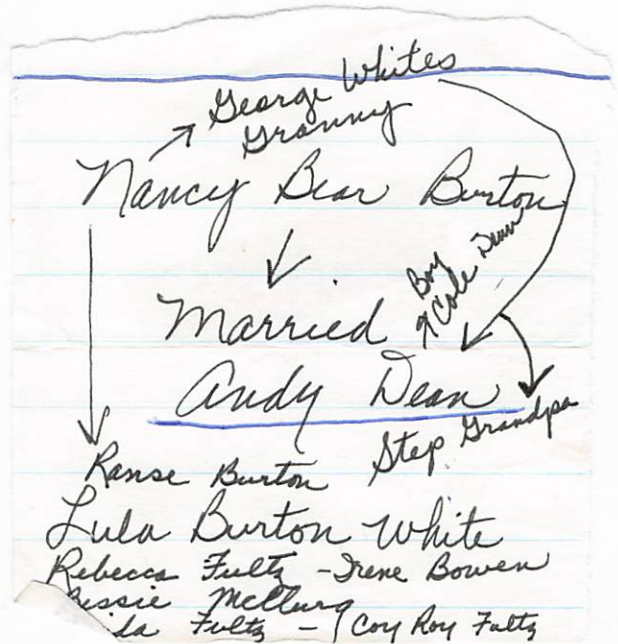 George Whites
Granny
Nancy Bear Burton
Married
Boy
Cole Dean
Andy Dean
Step Grandpa
Ranse Burton
Lula Burton White
Rebecca Fultz - Irene Bowen
Bessie McClurg
Fultz - Coy Roy Fultz